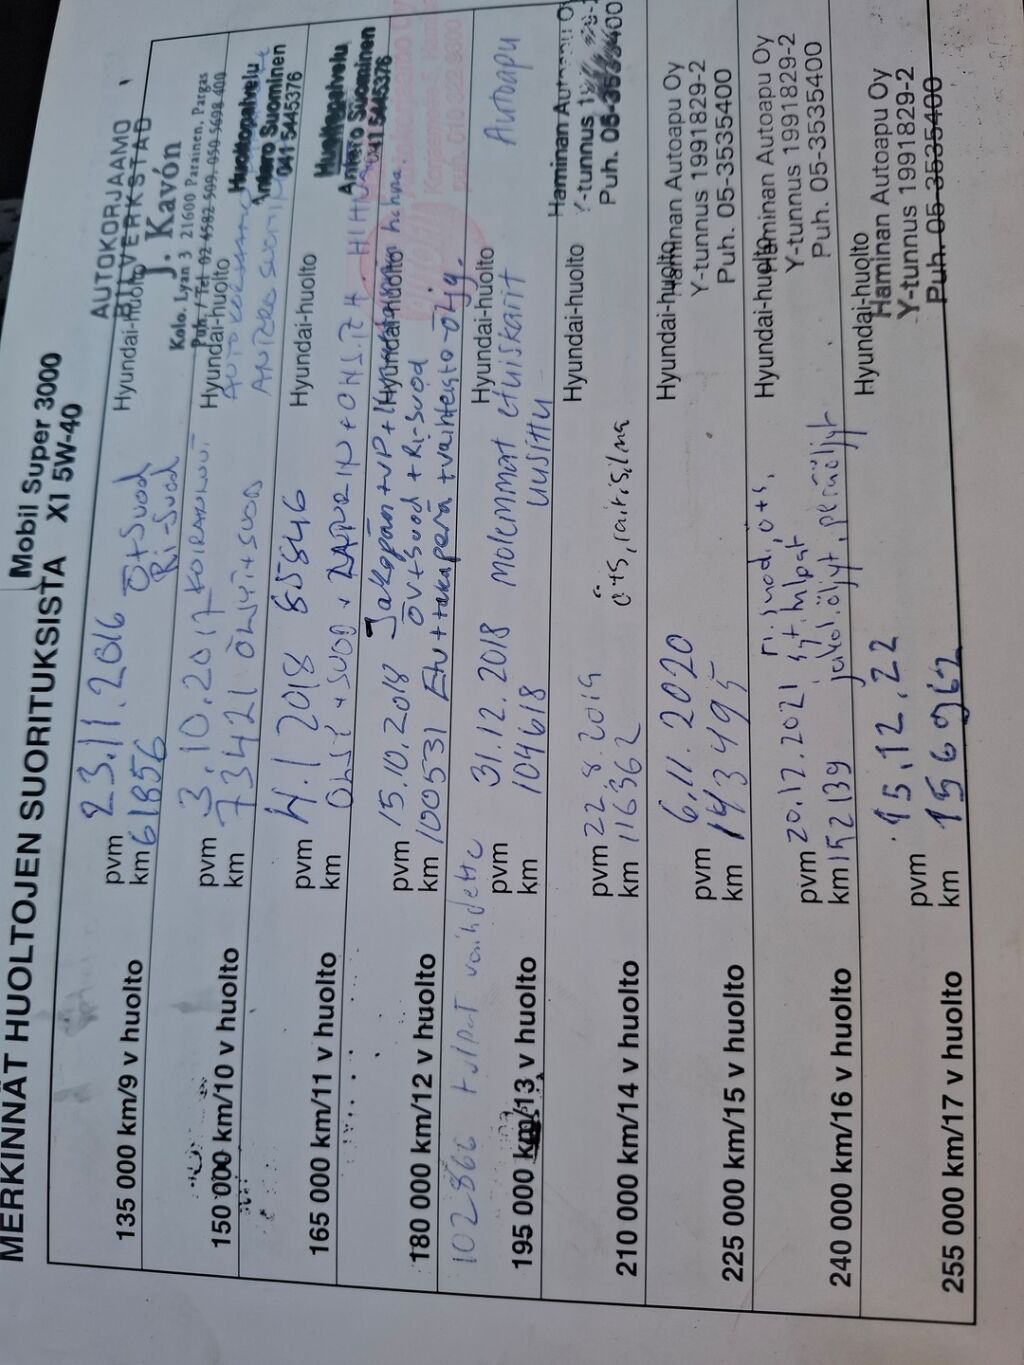 MERKINNÄT HUOLTOJEN SUORITUKSISTA
Mobil Super 3000
X1 5W-40
135 000 km/9 v huolto
pvm 23.11.2016
km 61856
Ö+Suod
Ri-Suod
Hyundai-huolto
AUTOKORJAAMO
BILVERKSTAD
J. Kavón
Kolo. Lyan 3 21600 Parainen, Pargas
150 000 km/10 v huolto
pvm 3.10.2017
km 73421 ÖLJYT+SUOD
Hyundai-huolto
ANTERO SUOMINEN
Huoltopalvelu
Antero Suominen
041 5445376
165 000 km/11 v huolto
pvm 4.1 2018 85846
km
Hyundai-huolto
Huoltopalvelu
Antero Suominen
041 5445376
180 000 km/12 v huolto
pvm 15.10.2018
km 100531
ÖV+Suod + Ri-Suod
Etu + takaperä + vaihteisto-öljy.
Hyundai-huolto
102866 tulpat vaihdettu
195 000 km/13 v huolto
pvm 31.12.2018 Molemmat etuiskarit
km 104618 uusittu
Hyundai-huolto
Autoapu
210 000 km/14 v huolto
pvm 22.8.2019
km 116362 ö+s, rait.silma
Hyundai-huolto
Haminan Autoapu Oy
Y-tunnus
Puh. 05-3535400
225 000 km/15 v huolto
pvm 6.11.2020
km 143495
Hyundai-huolto
Haminan Autoapu Oy
Y-tunnus 1991829-2
Puh. 05-3535400
240 000 km/16 v huolto
pvm 20.12.2021 ri.suod, ö+s,
km 152139 jakol.öljyt, peräöljyt
Hyundai-huolto
Haminan Autoapu Oy
Y-tunnus 1991829-2
Puh. 05-3535400
255 000 km/17 v huolto
pvm 15.12.22
km 156962
Hyundai-huolto
Haminan Autoapu Oy
Y-tunnus 1991829-2
Puh. 05-3535400